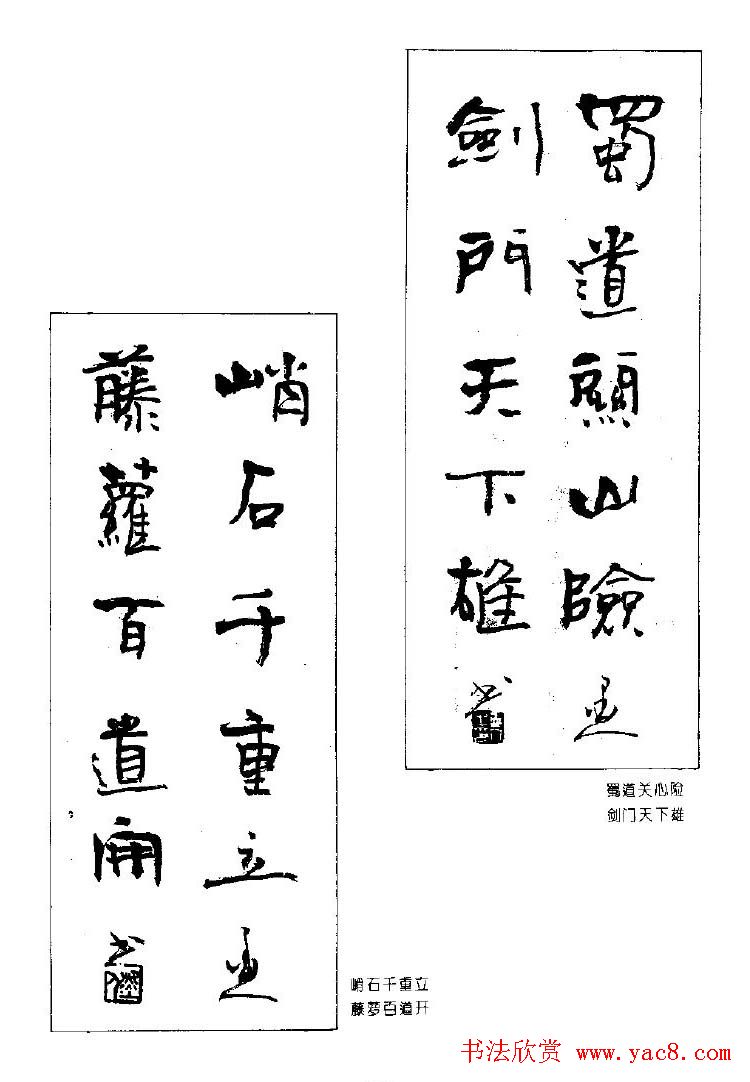 蜀道山險
劍門天下雄書
蜀道关心险
剑门天下雄
峭石千重立
藤蘿百道開書
峭石千重立
藤萝百道开
书法欣赏 www.yac8.com